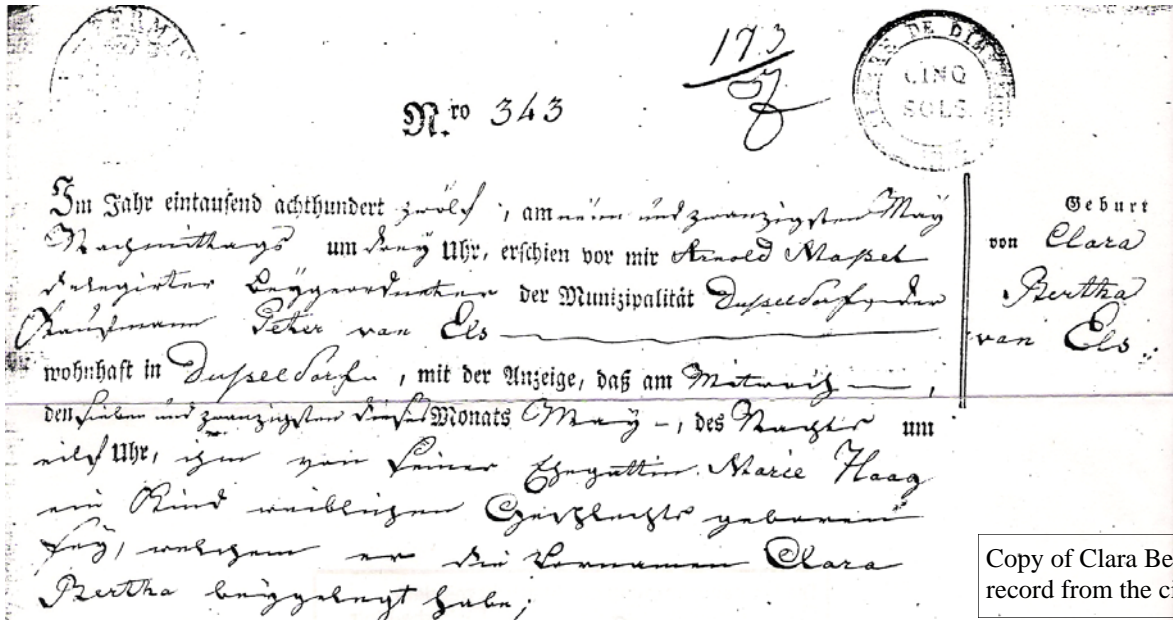 173
N.ro 343
CINQ
SOLS.
Im Jahr eintausend achthundert zwölf, am neun und zwanzigsten May
Nachmittags um drey Uhr, erschien vor mir Arnold Maßet
delegirter Beygeordneter der Munizipalität Dusseldorf, der
Kaufmann Peter van Els
wohnhaft in Dusseldorf, mit der Anzeige, daß am Mitwoch,
den sieben und zwanzigsten dieses Monats May, des Nachts um
eilf Uhr, ihm von seiner Ehegattin Marie Haag
ein Kind weiblichen Geschlechts geboren
sey, welchem er die Vornamen Clara
Bertha beygelegt habe;
Geburt
von Clara
Bertha
van Els.
Copy of Clara Be
record from the ci